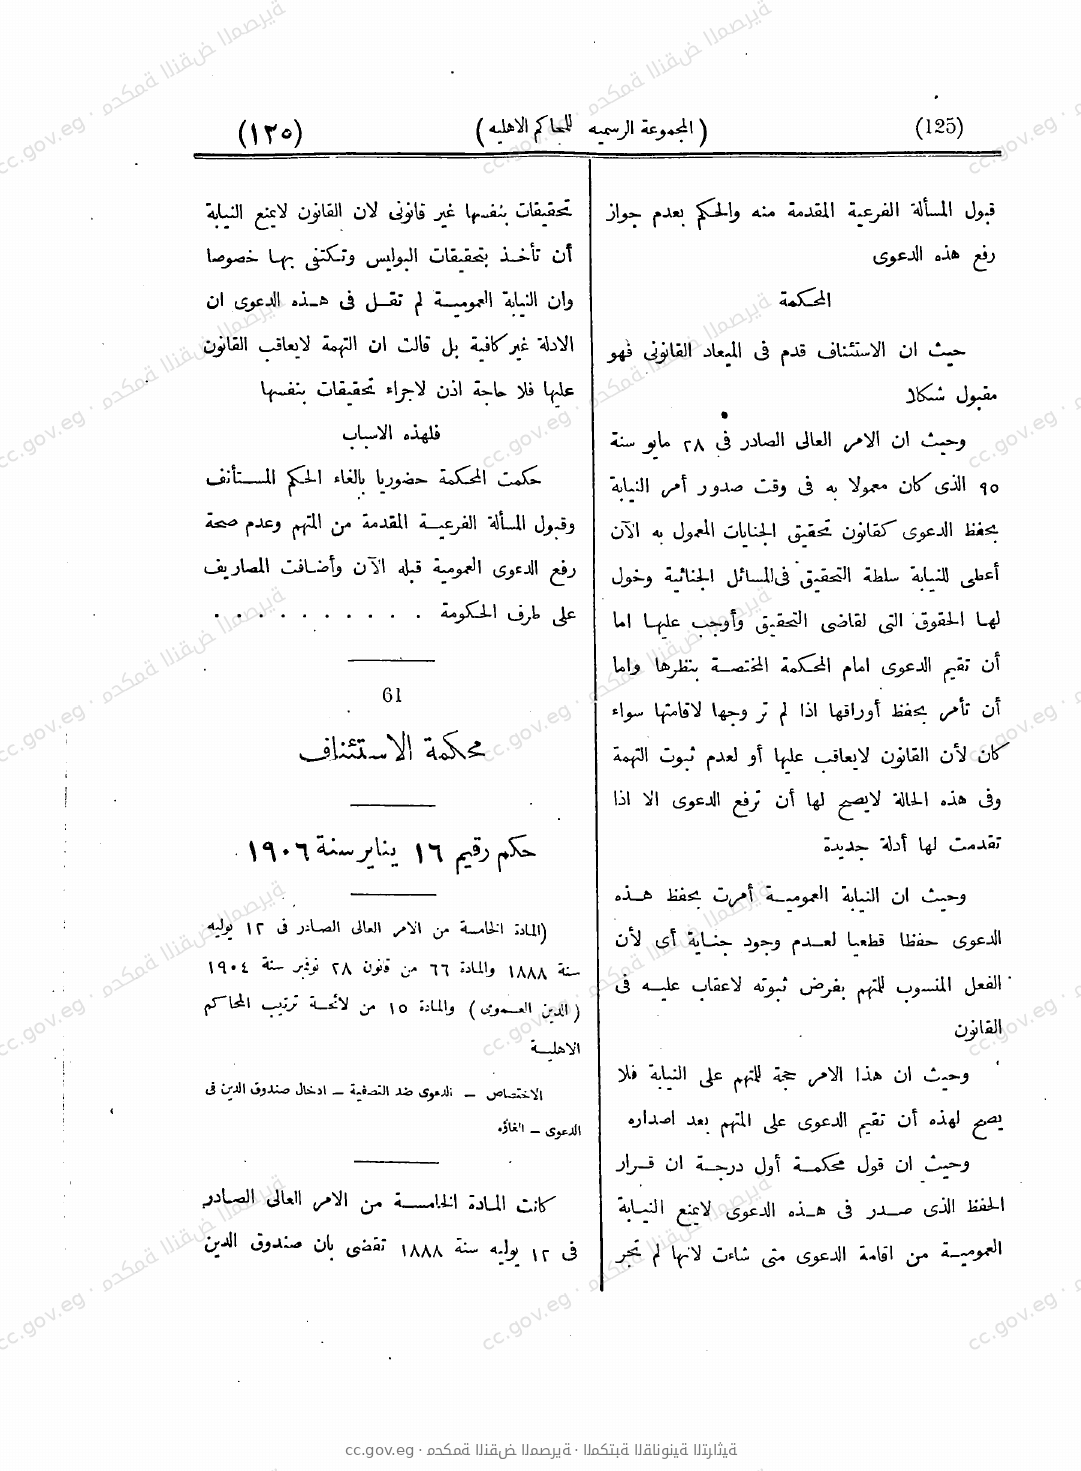 (125)
(المجموعة الرسميه للمحاكم الاهليه)
(١٢٥)
قبول المسألة الفرعية المقدمة منه والحكم بعدم جواز
رفع هذه الدعوى
المحكمة
حيث ان الاستئناف قدم فى الميعاد القانونى فهو
مقبول شكلا
وحيث ان الامر العالى الصادر فى ٢٨ مايو سنة
٩٥ الذى كان معمولا به فى وقت صدور أمر النيابة
بحفظ الدعوى كقانون تحقيق الجنايات المعمول به الآن
أعطى للنيابة سلطة التحقيق فى المسائل الجنائية وخول
لها الحقوق التى لقاضى التحقيق وأوجب عليها اما
أن تقيم الدعوى امام المحكمة المختصة بنظرها واما
أن تأمر بحفظ أوراقها اذا لم تر وجها لاقامتها سواء
كان لأن القانون لايعاقب عليها أو لعدم ثبوت التهمة
وفى هذه الحالة لايصح لها أن ترفع الدعوى الا اذا
تقدمت لها أدلة جديدة
وحيث ان النيابة العمومية أمرت بحفظ هذه
الدعوى حفظا قطعيا لعدم وجود جناية أى لأن
الفعل المنسوب للمتهم بفرض ثبوته لاعقاب عليه فى
القانون
وحيث ان هذا الامر حجة للمتهم على النيابة فلا
يصح لهذه أن تقيم الدعوى على المتهم بعد اصداره
وحيث ان قول محكمة أول درجة ان قرار
الحفظ الذى صدر فى هذه الدعوى لايمنع النيابة
العمومية من اقامة الدعوى متى شاءت لانها لم تجر
تحقيقات بنفسها غير قانونى لان القانون لايمنع النيابة
أن تأخذ بتحقيقات البوليس وتكتفى بها خصوصا
وان النيابة العمومية لم تقل فى هذه الدعوى ان
الادلة غير كافية بل قالت ان التهمة لايعاقب القانون
عليها فلا حاجة اذن لاجراء تحقيقات بنفسها
فلهذه الاسباب
حكمت المحكمة حضوريا بالغاء الحكم المستأنف
وقبول المسألة الفرعية المقدمة من المتهم وعدم صحة
رفع الدعوى العمومية قبله الآن وأضافت المصاريف
على طرف الحكومة . . . . . . . . . .
61
محكمة الاستئناف
حكم رقيم ١٦ يناير سنة ١٩٠٦
(المادة الخامسة من الامر العالى الصادر فى ١٢ يوليه
سنة ١٨٨٨ والمادة ٦٦ من قانون ٢٨ نوفمبر سنة ١٩٠٤
(الدين العمومى) والمادة ١٥ من لائحة ترتيب المحاكم
الاهلية
الاختصاص – الدعوى ضد التصفية – ادخال صندوق الدين فى
الدعوى – الغاؤه
كانت المادة الخامسة من الامر العالى الصادر
فى ١٢ يوليه سنة ١٨٨٨ تقضى بان صندوق الدين
cc.gov.eg · محكمة النقض المصرية · المكتبة القانونية التراثية